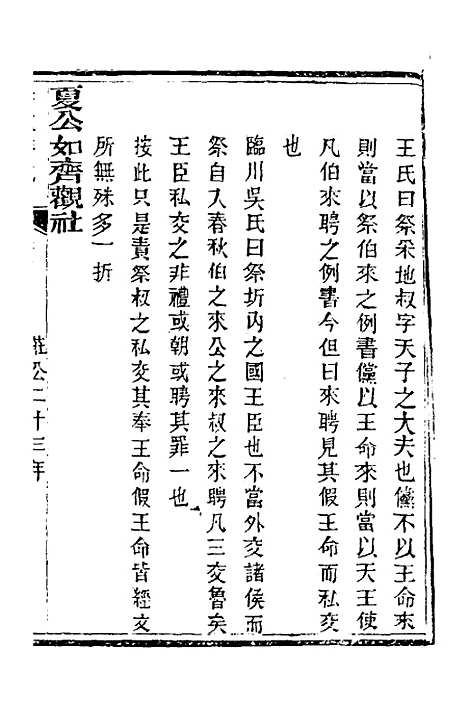 王氏曰祭采地叔字天子之大夫也儻不以王命來
則當以祭伯來之例書儻以王命來則當以天王使
凡伯來聘之例書今但曰來聘見其假王命而私交
也
臨川吳氏曰祭圻內之國王臣也不當外交諸侯而
祭自入春秋伯之來公之來叔之來聘凡三交魯矣
王臣私交之非禮或朝或聘其罪一也
按此只是責祭叔之私交其奉王命假王命皆經文
所無殊多一折
夏公如齊觀社
莊公二十三年